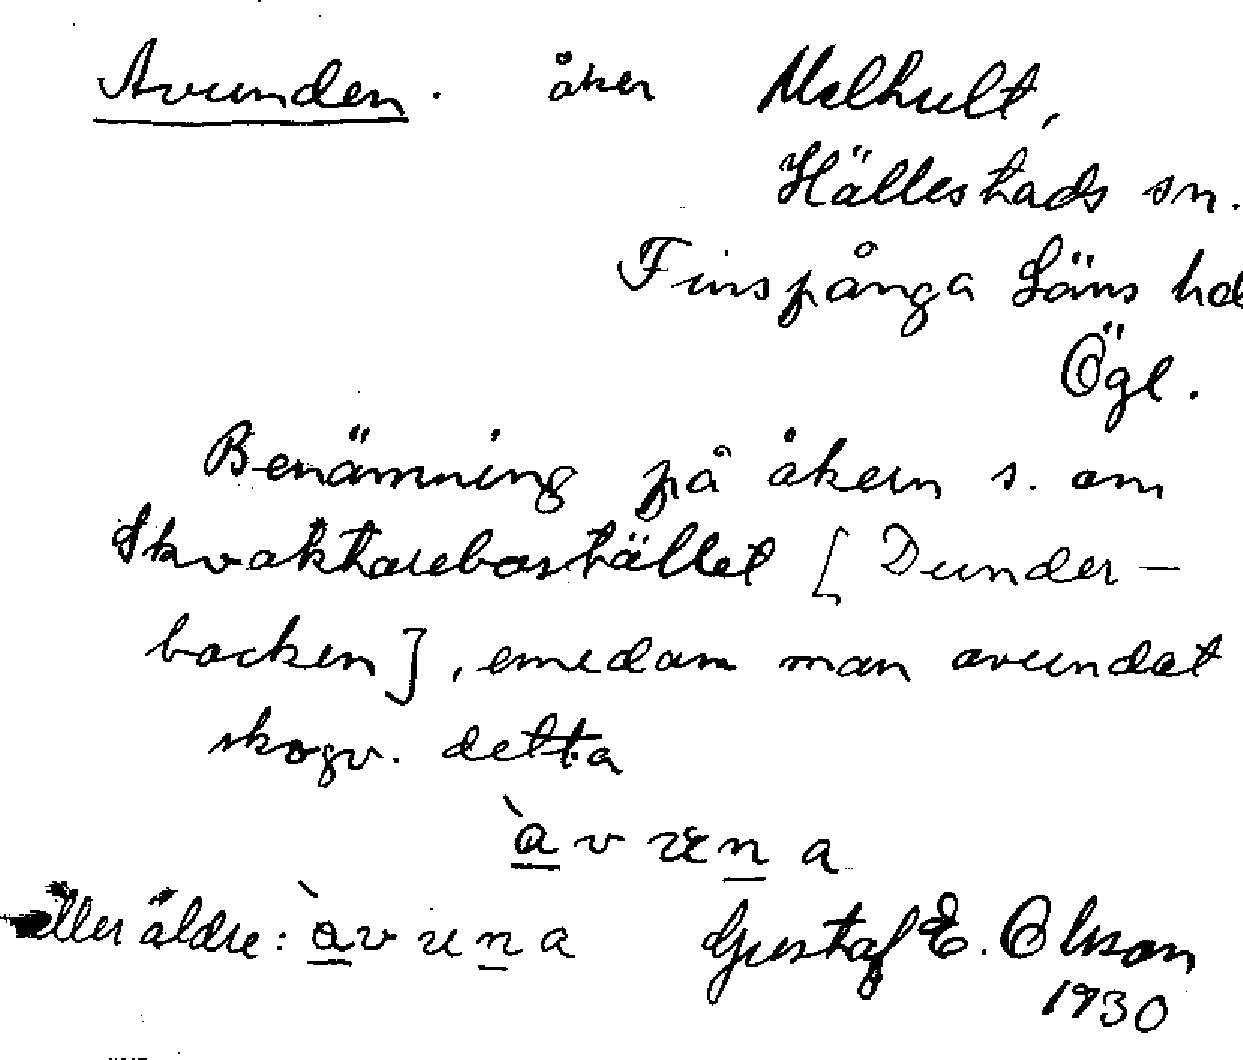 Avunden. åker Melhult,
Hällestads sn.
Finspånga Läns hd
Ögl.
Benämning på åkern s. om
Skvaktarebostället [Dunder-
backen], emedan man avundat
skogv. detta
eller äldre:
Gustaf E. Olsson
1930